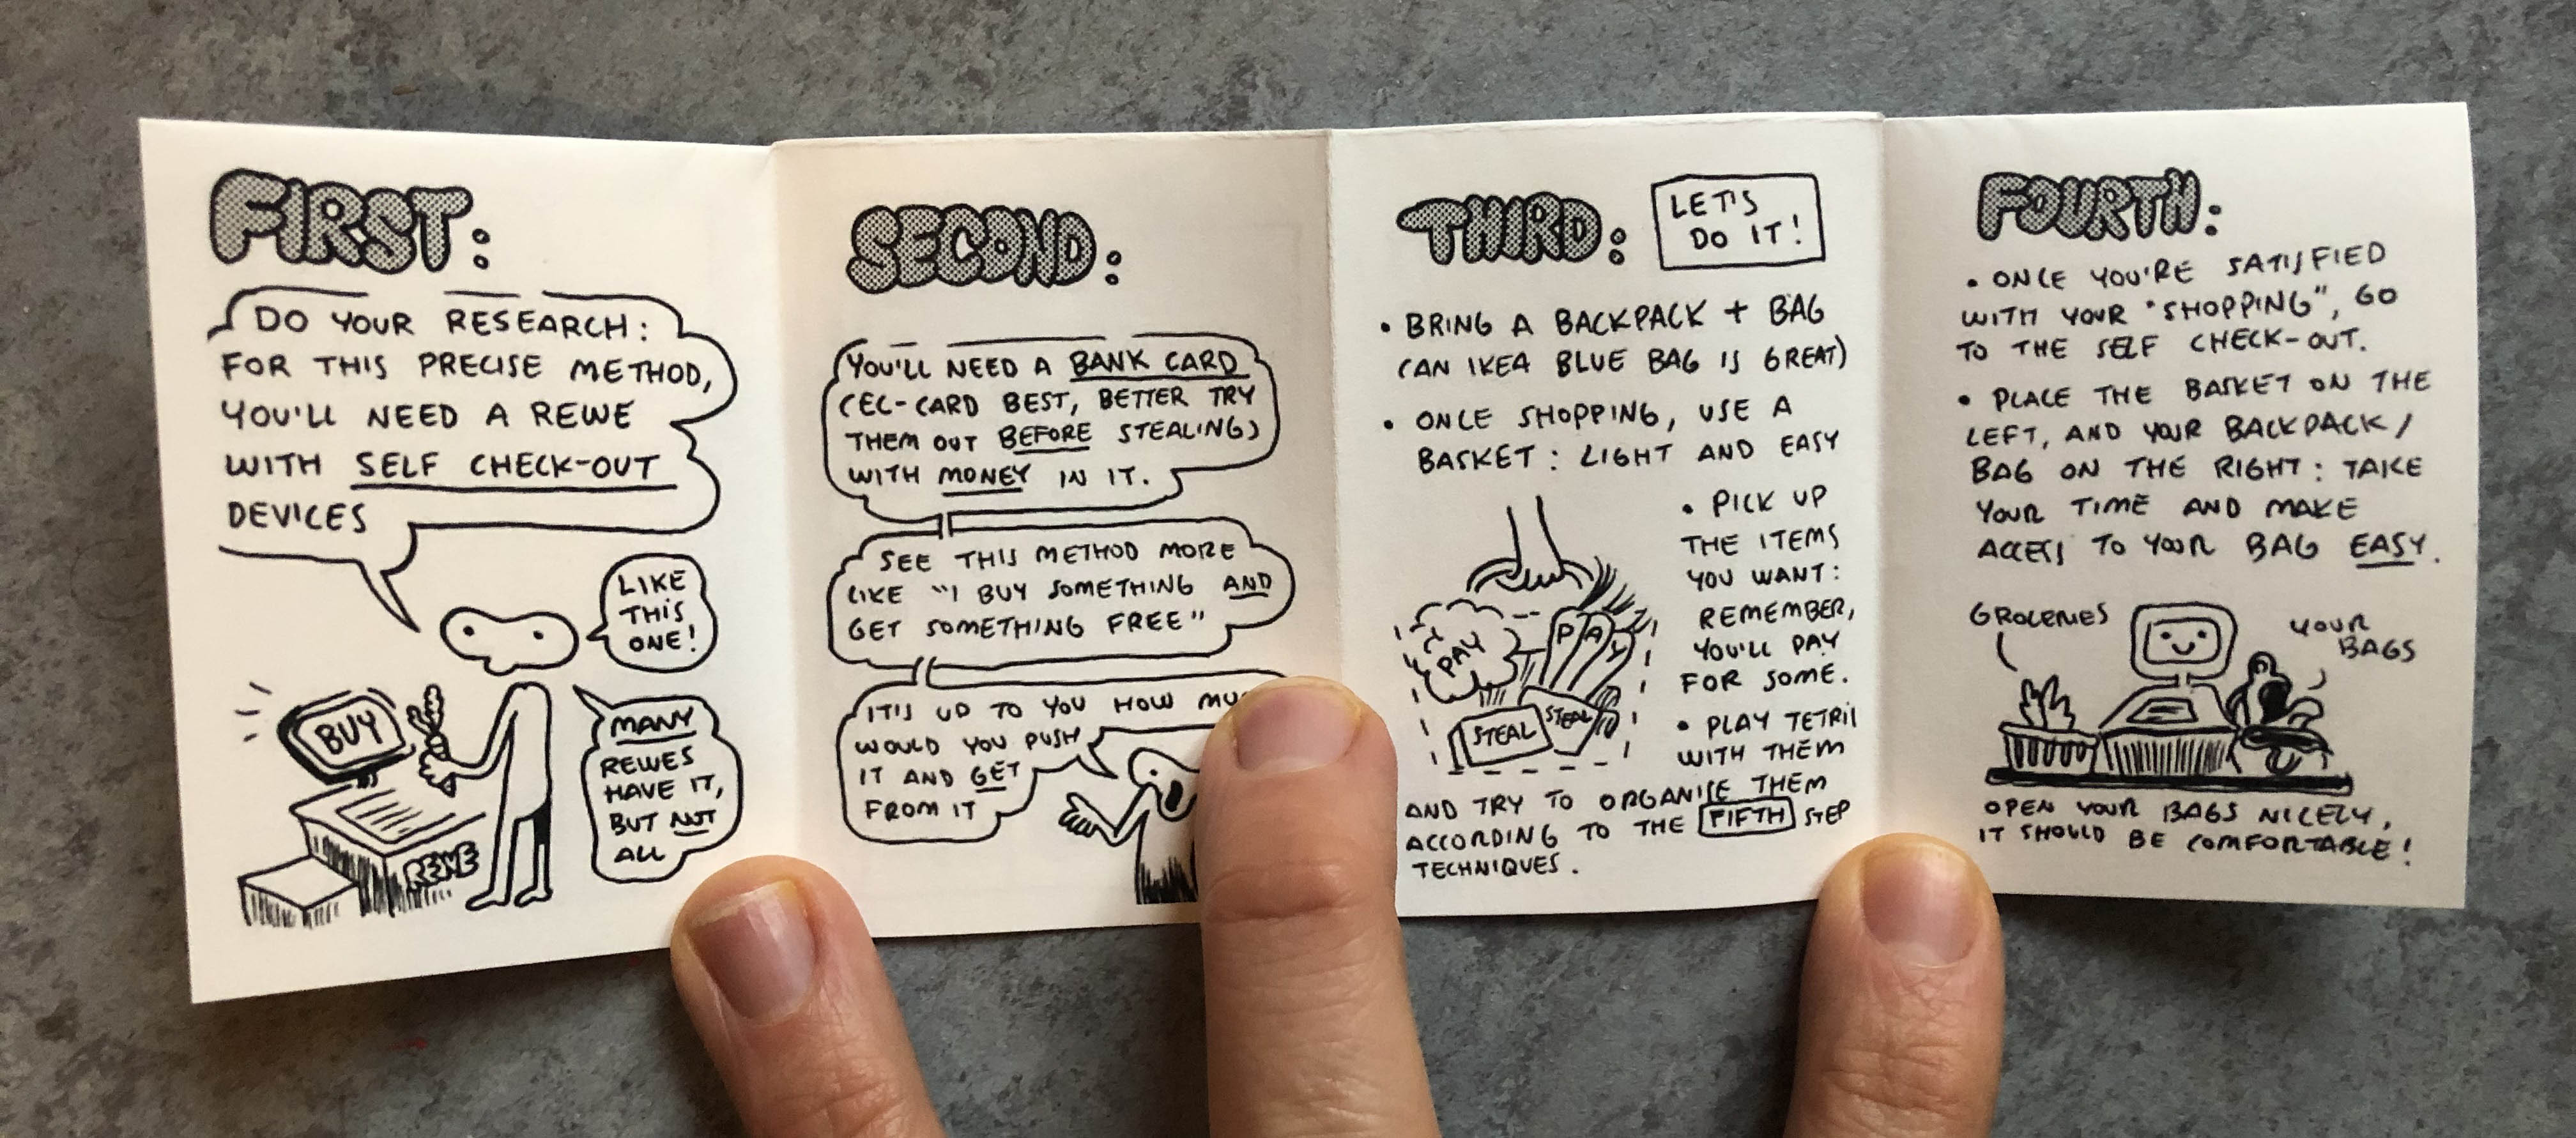 FIRST:
DO YOUR RESEARCH:
FOR THIS PRECISE METHOD,
YOU'LL NEED A REWE
WITH SELF CHECK-OUT
DEVICES
LIKE
THIS
ONE!
BUY
REWE
MANY
REWES
HAVE IT,
BUT NOT
ALL
SECOND:
YOU'LL NEED A BANK CARD
(EC-CARD BEST, BETTER TRY
THEM OUT BEFORE STEALING)
WITH MONEY IN IT.
SEE THIS METHOD MORE
LIKE "I BUY SOMETHING AND
GET SOMETHING FREE"
IT'S UP TO YOU HOW
WOULD YOU PUSH
IT AND GET
FROM IT
THIRD:
LET'S
DO IT!
• BRING A BACKPACK + BAG
(AN IKEA BLUE BAG IS GREAT)
• ONCE SHOPPING, USE A
BASKET: LIGHT AND EASY
• PICK UP
THE ITEMS
YOU WANT:
REMEMBER,
YOU'LL PAY
FOR SOME.
PAY
PAY
STEAL
STEAL
• PLAY TETRIS
WITH THEM
AND TRY TO ORGANISE THEM
ACCORDING TO THE FIFTH STEP
TECHNIQUES.
FOURTH:
• ONCE YOU'RE SATISFIED
WITH YOUR "SHOPPING", GO
TO THE SELF CHECK-OUT.
• PLACE THE BASKET ON THE
LEFT, AND YOUR BACKPACK/
BAG ON THE RIGHT: TAKE
YOUR TIME AND MAKE
ACCESS TO YOUR BAG EASY.
GROCERIES
YOUR
BAGS
OPEN YOUR BAGS NICELY,
IT SHOULD BE COMFORTABLE!